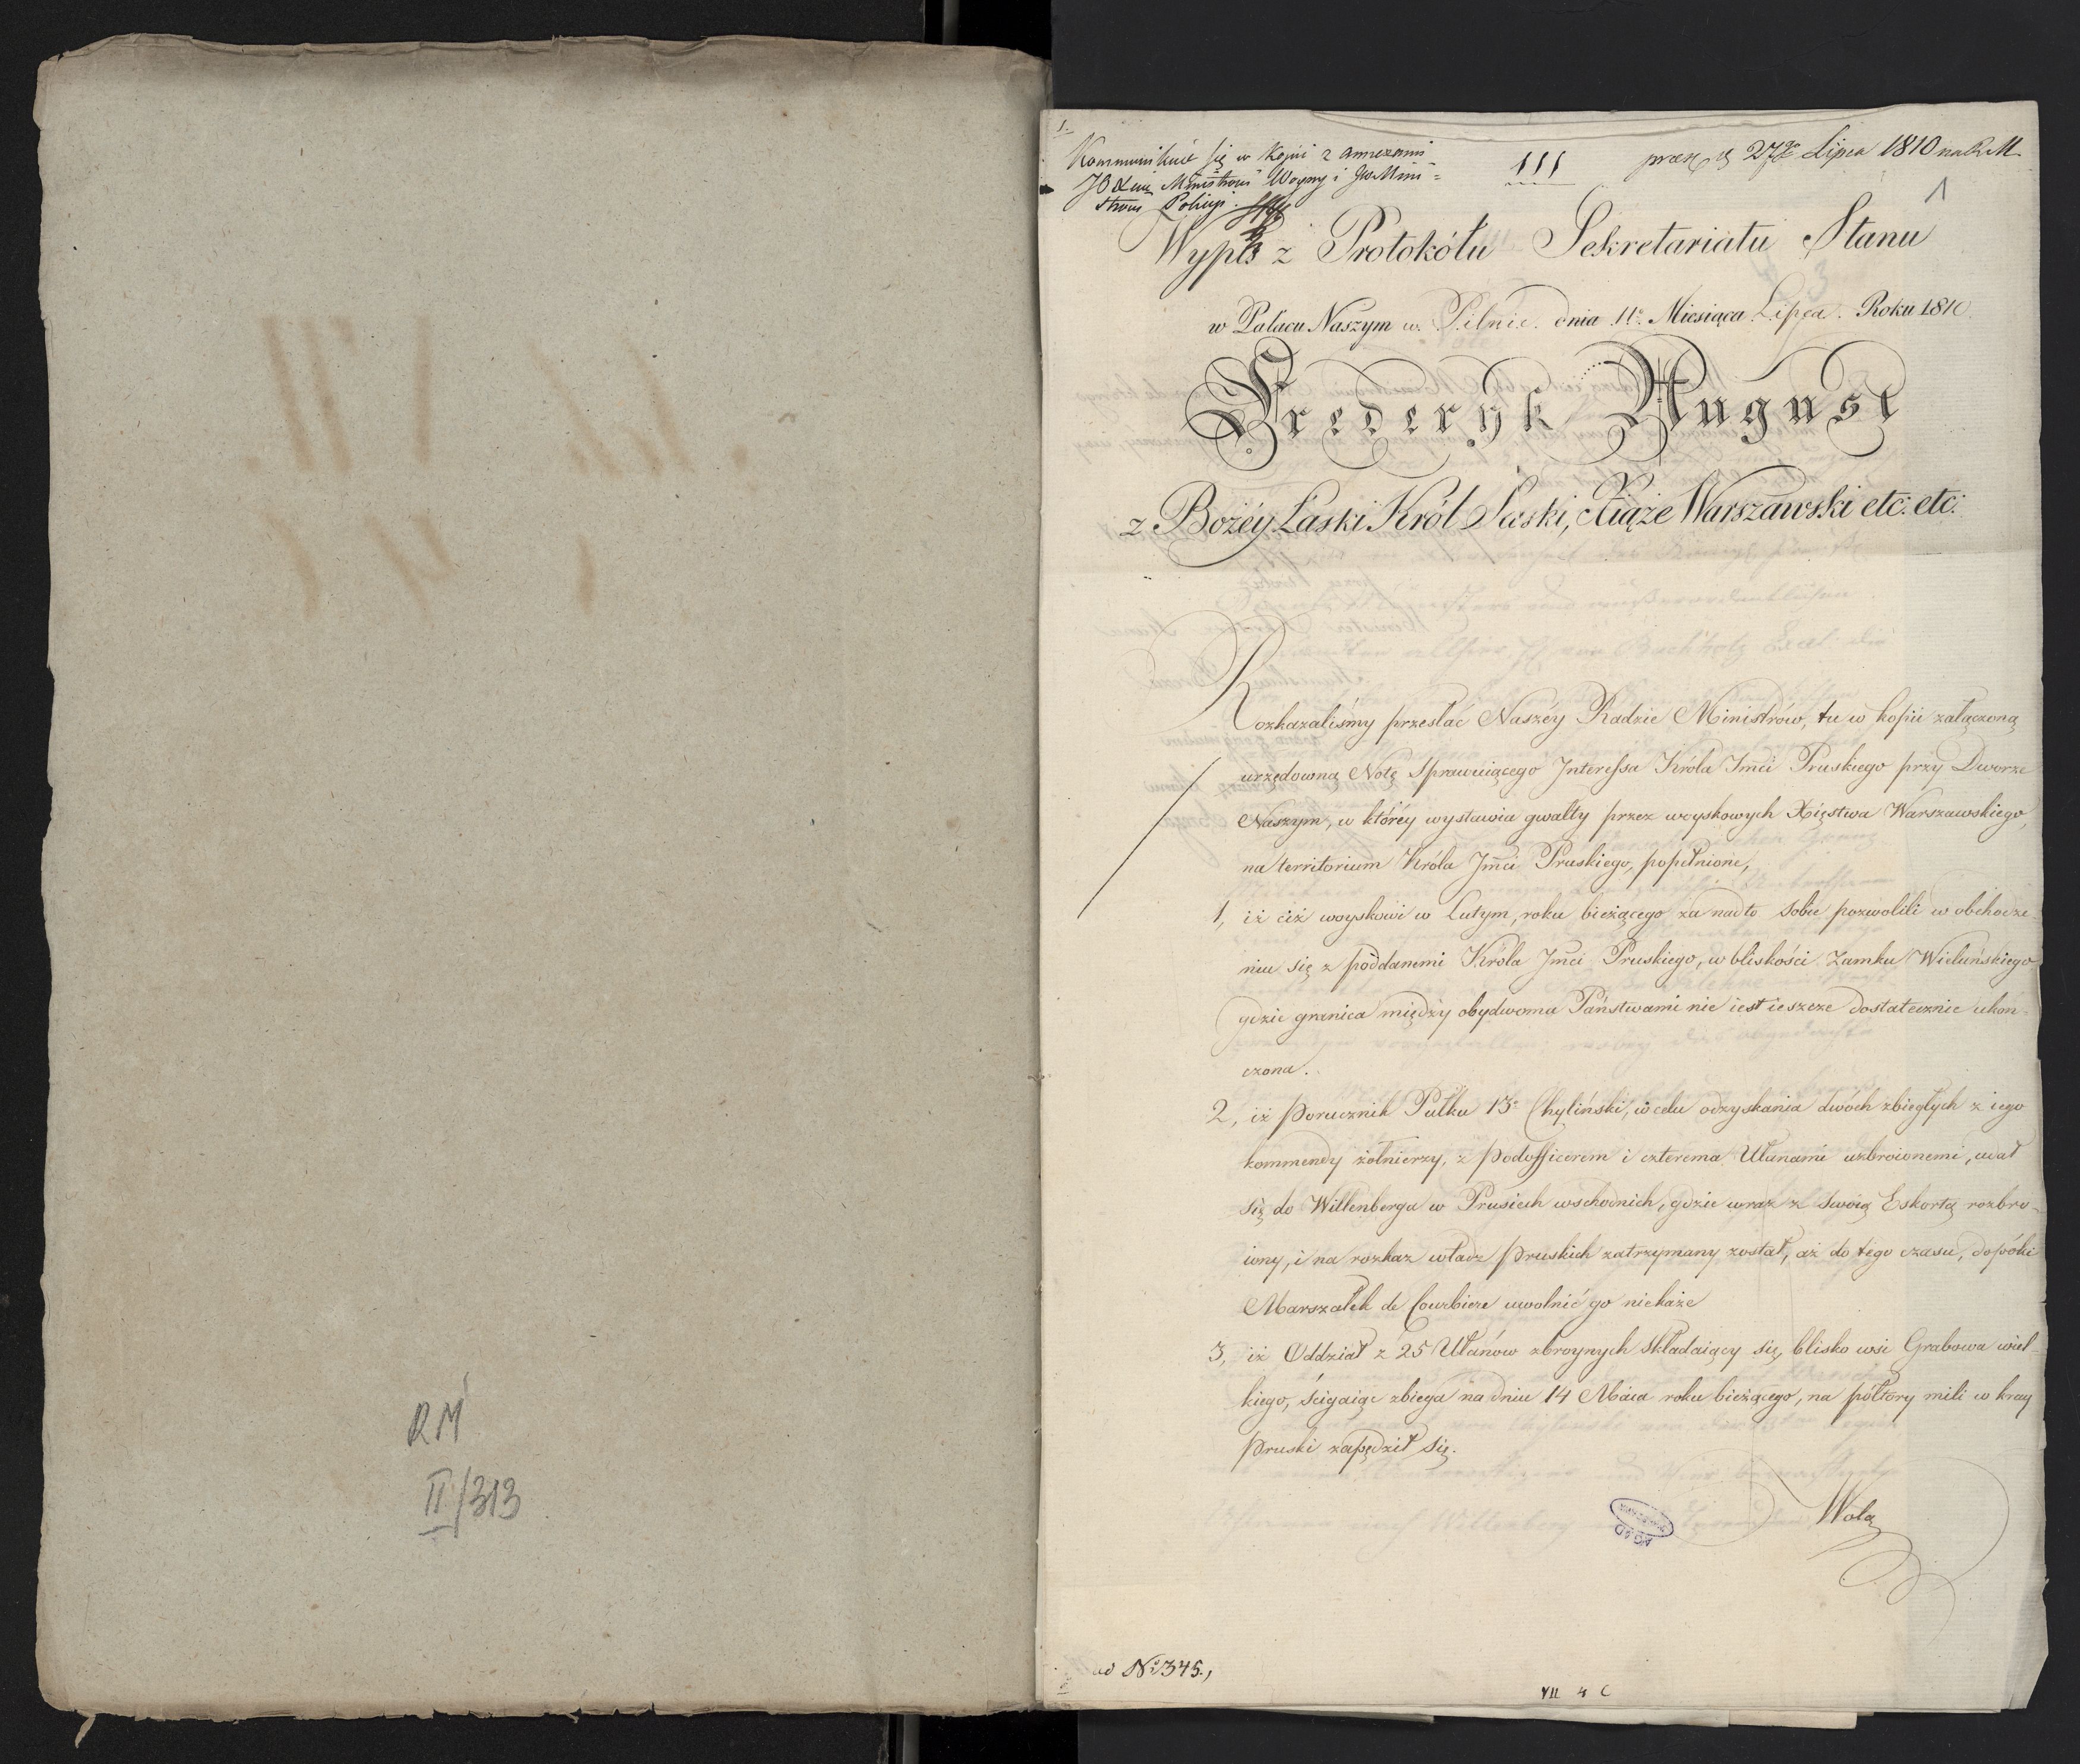 RM
II/313
1.
Kommunikuie się w Kopii z annexami
JO Xciu Ministrowi Woyny i JW Mini=
strowi Policyi.
111
praes: d 27go Lipca 1810 na R.M.
1
Wypis z Protokółu Sekretariatu Stanu
w Pałacu Naszym w. Pilnic. dnia 11o. Miesiąca Lipca. Roku 1810
Frederyk August
z Bożéy Łaski Król Saski, Xiąże Warszawski etc: etc:
Rozkazaliśmy przesłać Naszéy Radzie Ministrów, tu w kopii załączoną
urzędowną Notę Sprawuiącego Interessa Króla Jmci Pruskiego przy Dworze
Naszym, w któréy wystawia gwałty przez woyskowych Xięstwa Warszawskiego,
na territorium Króla Jmci Pruskiego, popełnione,
1, iż ciż woyskowi w Lutym, roku bieżącego za nadto sobie pozwolili w obchodze-
niu się z poddanemi Króla Jmci Pruskiego, w bliskości Zamku Wieluńskiego
gdzie granica między obydwoma Państwami nie iest ieszcze dostatecznie ukoń-
czona.
2, iż Porucznik Pułku 13o Chyliński, w celu odzyskania dwóch zbiegłych z iego
kommendy żołnierzy, z Podofficerem i czterema Ułanami uzbroionemi, udał
się do Willenberga w Prusiech wschodnich, gdzie wraz z swoią Eskortą rozbro-
iony, i na rozkaz władz Pruskich zatrzymany został, aż do tego czasu, dopóki
Marszałek de Courbiere uwolnić go niekaże
3, iż Oddział z 25 Ułanów zbroynych składaiący się, blisko wsi Grabowa wiel-
kiego, ścigaiąc zbiega na dniu 14 Maia roku bieżącego, na półtory mili w kray
Pruski zapędził się.
Wolą
AGAD
ad No 345.,
VII 4 C